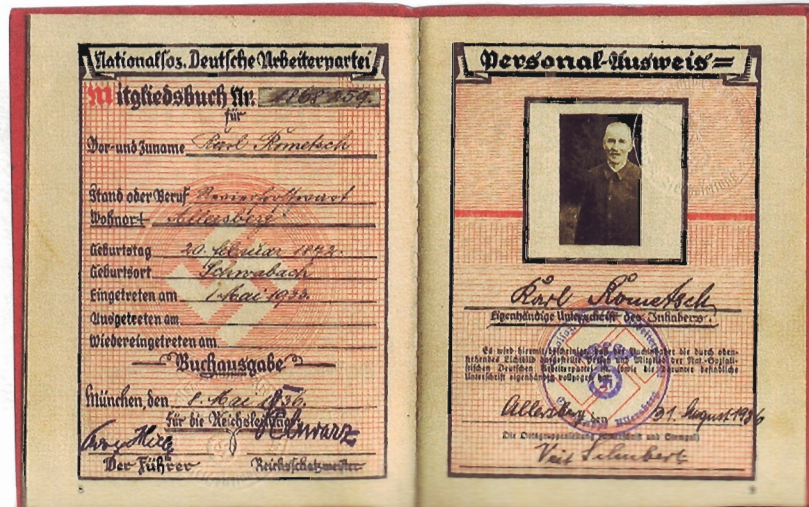 Nationalsoz. Deutsche Arbeiterpartei
Mitgliedsbuch Nr.
für
Vor- und Zuname Karl Rometsch
Stand oder Beruf
Wohnort Allersberg
Geburtstag 20. Februar 1872.
Geburtsort Schwabach
Eingetreten am 1. Mai 1933.
Ausgetreten am
Wiedereingetreten am
Buchausgabe
München, den 8. Mai 1936.
Für die Reichsleitung
Schwarz
Der Führer Reichsschatzmeister
Personal-Ausweis
Karl Rometsch
Eigenhändige Unterschrift des Inhabers.
Es wird hiermit bescheinigt, daß der Buchinhaber die durch oben-
stehendes Lichtbild dargestellte Person und Mitglied der Nat.-Soziali-
stischen Deutschen Arbeiterpartei ist, sowie die darunter befindliche
Unterschrift eigenhändig vollzogen hat.
Allersberg den 31. August 1936
Die Ortsgruppenleitung
Veit Schubert